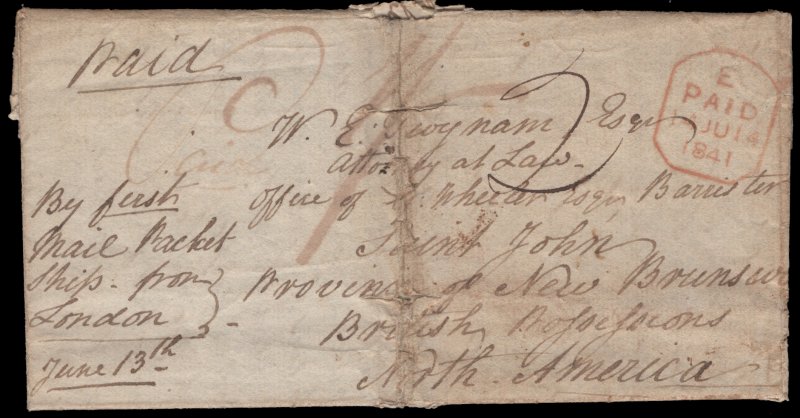 Paid
E
PAID
JU 14
1841
W. E. Twynam Esqr
Attorney at Law
Office of Wheeler Esqr Barrister
Saint John
Province of New Brunsw
British Possessions
North America
By first
Mail Packet
Ship from
London
June 13th